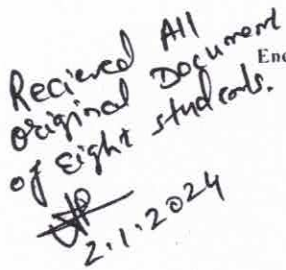 Recieved All
original Document
of Eight students.
2.1.2024